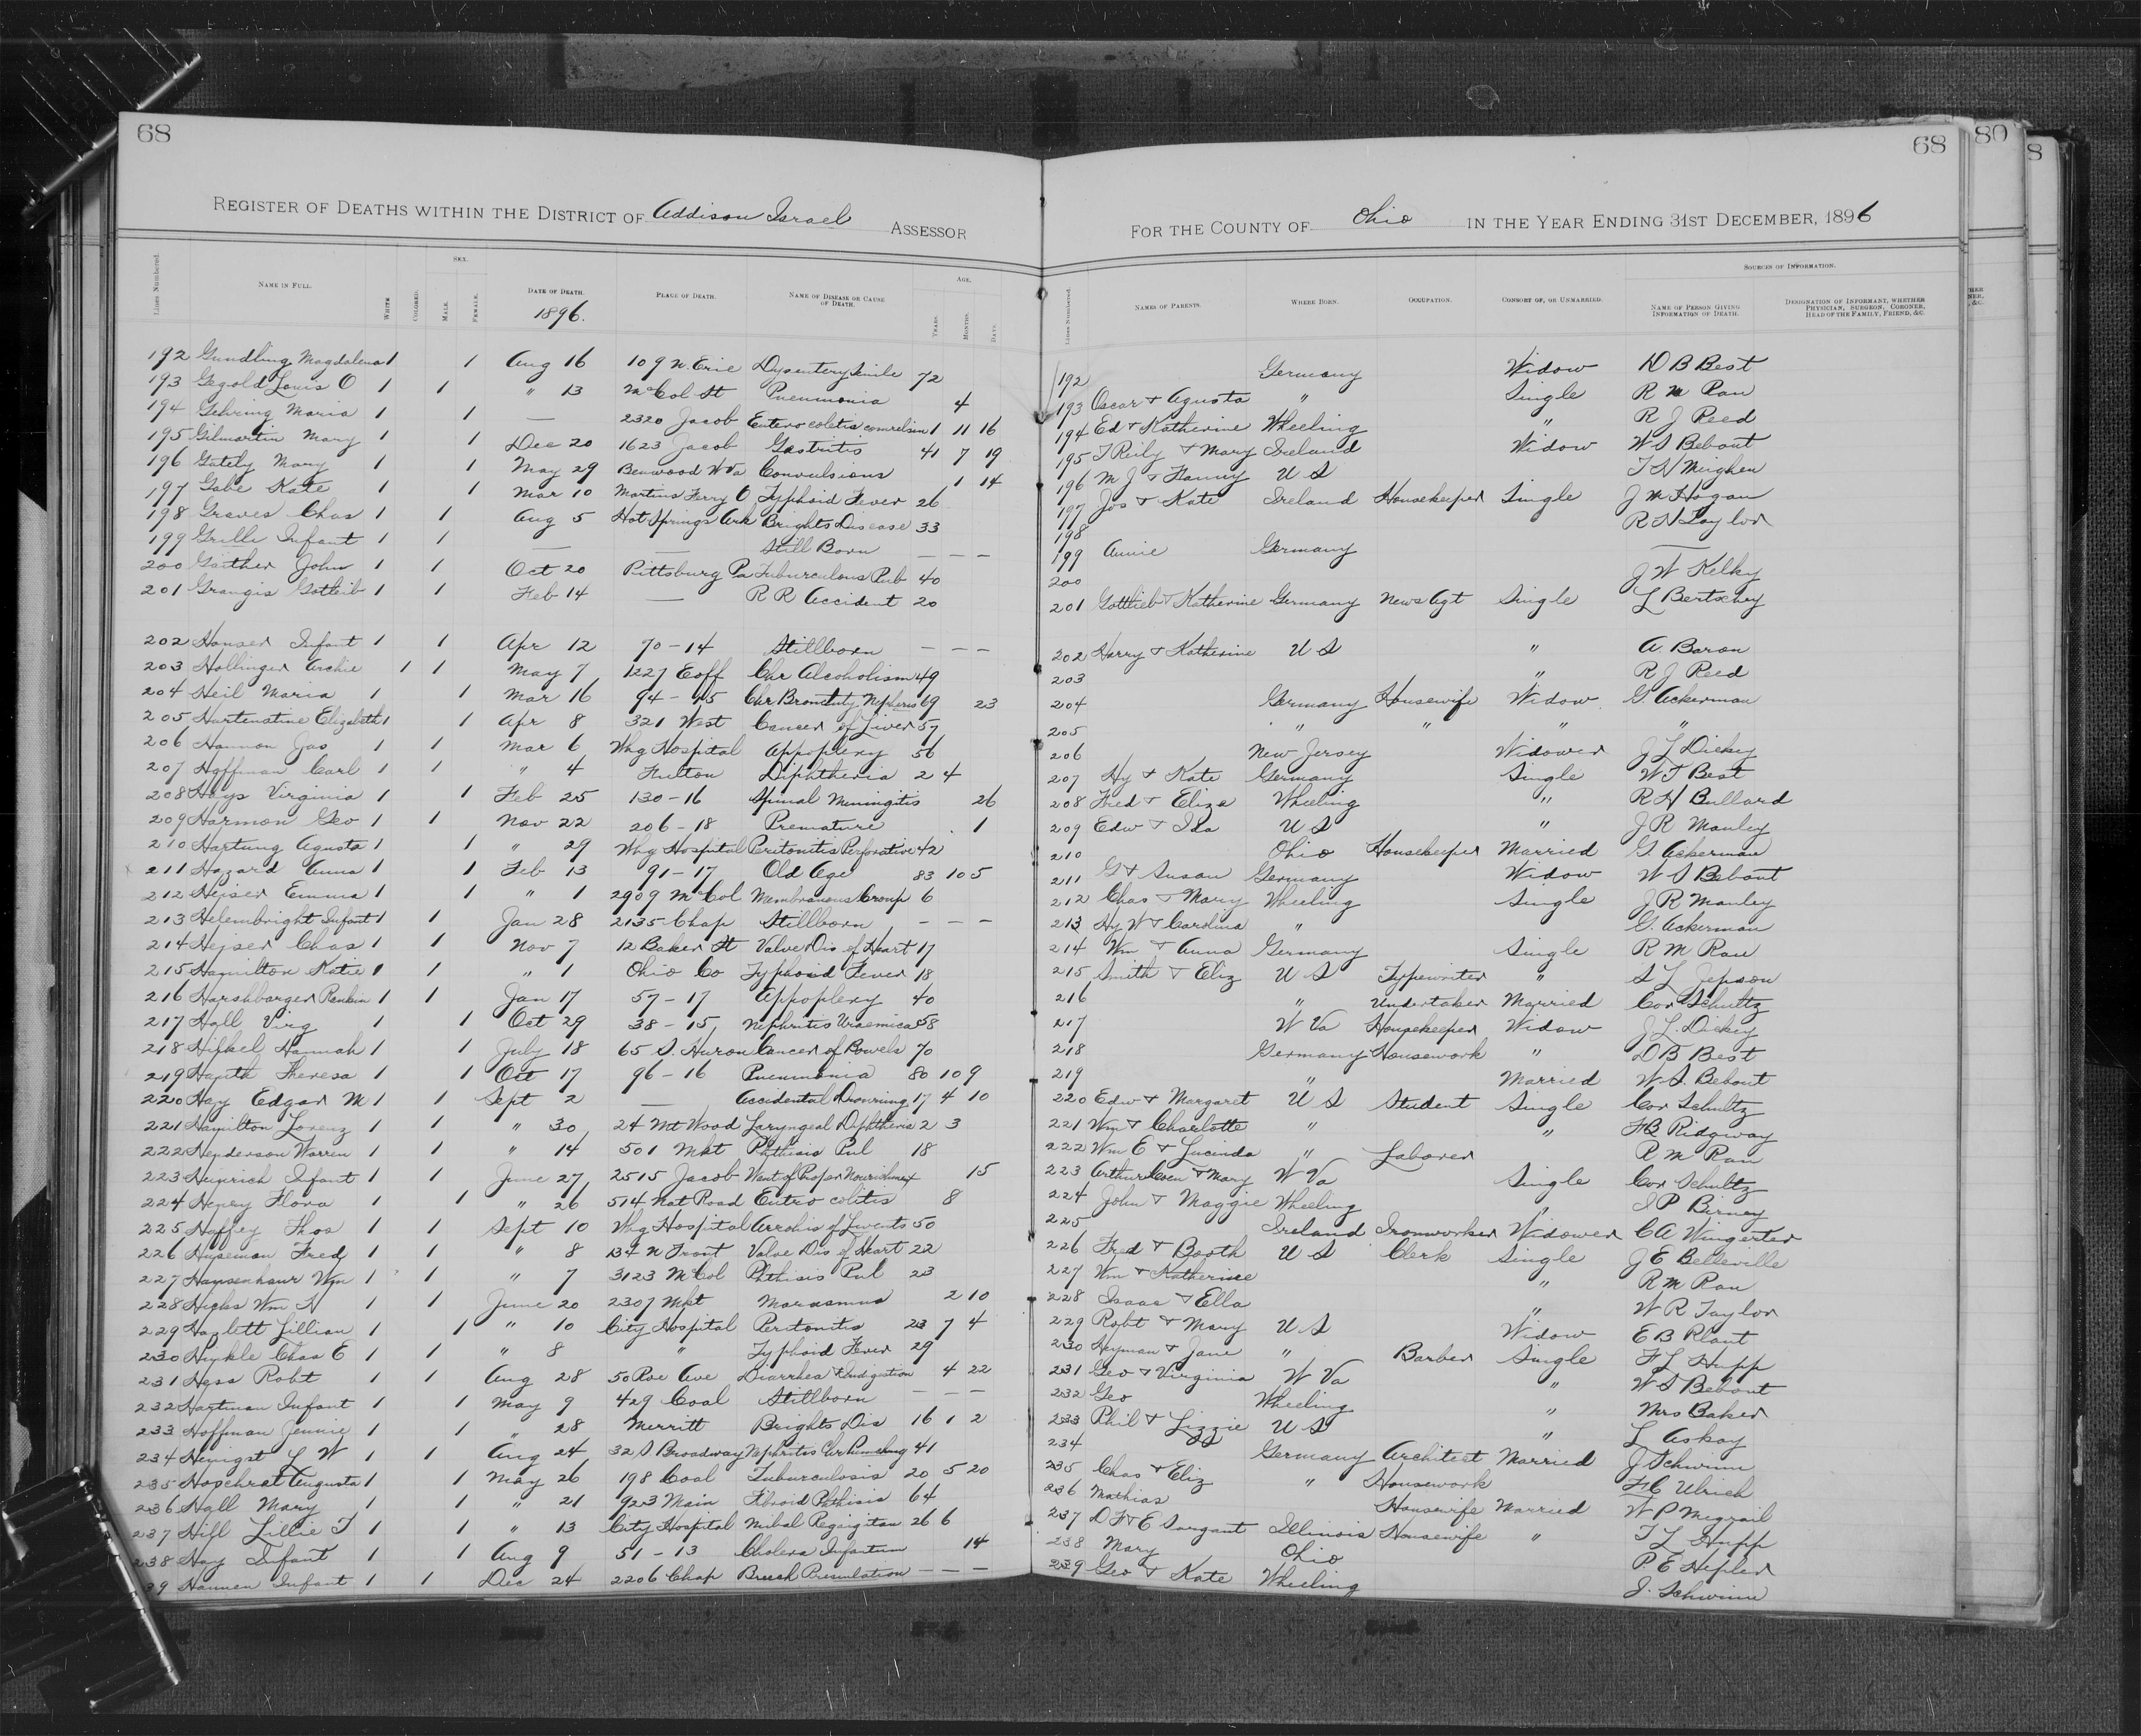 68
REGISTER OF DEATHS WITHIN THE DISTRICT OF Addison Israel ASSESSOR
LINES NUMBERED. NAME IN FULL. WHITE COLORED. SEX. MALE. FEMALE. DATE OF DEATH. 1896. PLACE OF DEATH. NAME OF DISEASE OR CAUSE OF DEATH. AGE. YEARS. MONTHS. DAYS.
192 Gundling Magdalena 1 1 Aug 16 109 N. Erie Dysentery Senile 72
193 Gegold Louis O 1 1 " 13 McCol St Pneumonia 4
194 Gehring Maria 1 1 — 2320 Jacob Entero colitis 1 11 16
195 Gilmartin Mary 1 1 Dec 20 1623 Jacob Gastritis 41 7 19
196 Gately Mary 1 1 May 29 Benwood W Va Convulsions 1 14
197 Gabe Kate 1 1 Mar 10 Martins Ferry O Typhoid Fever 26
198 Graves Chas 1 1 Aug 5 Hot Springs Ark Brights Disease 33
199 Grille Infant 1 1 — — Still Born — — —
200 Gaither John 1 1 Oct 20 Pittsburg Pa Tuburculous Pul 40
201 Grangis Gottleib 1 1 Feb 14 — R R Accident 20
202 Hanser Infant 1 1 Apr 12 70-14 Stillborn — — —
203 Hollinger Archie 1 1 May 7 1227 Eoff Chr Alcoholism 49
204 Heil Maria 1 1 Mar 16 94-45 Chr 69 23
205 Hurtenatine Elizabeth 1 1 Apr 8 321 West Cancer of Liver 57
206 Hannon Jas 1 1 Mar 6 Whg Hospital Appoplexy 56
207 Hoffman Carl 1 1 " 4 Fulton Diphtheria 2 4
208 Hays Virginia 1 1 Feb 25 130-16 Spinal Meningitis 26
209 Harmon Geo 1 1 Nov 22 206-18 Premature 1
210 Hartung Agusta 1 1 " 29 Whg Hospital Peritonitis Perforative 42
211 Hazard Anna 1 1 Feb 13 91-17 Old Age 83 10 5
212 Hejser Emma 1 1 " 1 2909 McCol Membranous Croup 6
213 Helembright Infant 1 1 Jan 28 2135 Chap Stillborn — — —
214 Hejser Chas 1 1 Nov 7 12 Baker St Valve Dis of Hart 17
215 Hamilton Katie 1 1 " 1 Ohio Co Typhoid Fever 18
216 Harshbarger Rankin 1 1 Jan 17 57-17 Appoplexy 40
217 Hall Virg 1 1 Oct 29 38-15 Nephritis Uraemica 58
218 Hifkel Hannah 1 1 July 18 65 S. Huron Cancer of Bowels 70
219 Hapita Theresa 1 1 Oct 17 96-16 Pneumonia 80 10 9
220 Hay Edgar M 1 1 Sept 2 — Accidental Drowning 17 4 10
221 Hamilton Lorenz 1 1 " 30 24 Mt Wood Laryngeal Diphtheria 2 3
222 Henderson Warren 1 1 " 14 501 Mkt Phthisis Pul 18
223 Heinrich Infant 1 1 June 27 2515 Jacob Want of Proper Nourishmet 15
224 Henry Flora 1 1 " 26 514 Nat Road Entro colitis 8
225 Haffey Thos 1 1 Sept 10 Whg Hospital 50
226 Huseman Fred 1 1 " 8 134 N Front Valve Dis of Hart 22
227 Hausenhaur Wm 1 1 " 7 3123 McCol Phthisis Pul 23
228 Hicks Wm H 1 1 June 20 2307 Mkt Marasmus 2 10
229 Hazlett Lillian 1 1 " 10 City Hospital Peritonitis 23 7 4
230 Hinkle Chas E 1 1 " 8 " Typhoid Fever 29
231 Hess Robt 1 1 Aug 28 50 Rae Ave Diarrhea & Indigestion 4 22
232 Hartman Infant 1 1 May 9 429 Coal Stillborn — — —
233 Hoffman Jennie 1 1 " 28 Merritt Brights Dis 16 1 2
234 Henigst L W 1 1 Aug 24 32 S Broadway Nephritis Chr 41
235 Hopchrat Augusta 1 1 May 26 198 Coal Tuburculosis 20 5 20
236 Hall Mary 1 1 " 21 923 Main Fibroid Phthisis 64
237 Hill Lillie T 1 1 " 13 City Hospital Mitral Regurgitan 26 6
238 Hay Infant 1 1 Aug 9 51-13 Cholera Infantum 14
39 Hannen Infant 1 1 Dec 24 2206 Chap Breech Presentation — — —
68
80
8
FOR THE COUNTY OF Ohio IN THE YEAR ENDING 31ST DECEMBER, 1896
LINES NUMBERED. NAMES OF PARENTS. WHERE BORN. OCCUPATION. CONSORT OF, OR UNMARRIED. SOURCES OF INFORMATION. NAME OF PERSON GIVING INFORMATION OF DEATH. DESIGNATION OF INFORMANT, WHETHER PHYSICIAN, SURGEON, CORONER, HEAD OF THE FAMILY, FRIEND, &C.
192 Germany Widow D B Best
193 Oscar & Agusta " Single R M Rau
194 Ed & Katherine Wheeling " R J Reed
195 T Reily & Mary Ireland Widow W S Bebout
196 M J & Fanny U S T H Meighen
197 Jos & Kate Ireland Housekeeper Single J M Hogan
198 R H Taylor
199 Annie Germany —
200 J W Kelky
201 Gottlieb & Katherine Germany News Agt Single L Bertschy
202 Harry & Katherine U S " A. Baron
203 " R J Reed
204 Germany Housewife Widow G. Ackerman
205 " " " "
206 New Jersey Widower J L Dickey
207 Hy & Kate Germany Single W J Best
208 Fred & Eliza Wheeling " R H Bullard
209 Edw & Ida U S " J R Manley
210 Ohio Housekeeper Married G. Ackerman
211 G & Susan Germany Widow W S Bebout
212 Chas & Mary Wheeling Single J R Manley
213 Hy W & Carolina " G. Ackerman
214 Wm & Anna Germany Single R M Rau
215 Smith & Eliz U S Typewriter " S L Jepson
216 " Undertaker Married Cor Schultz
217 W Va Housekeeper Widow J L. Dickey
218 Germany Housework " D B Best
219 " Married W. S. Bebout
220 Edw & Margaret U S Student Single Cor Schultz
221 Wm & Charlotte " " F B Ridgway
222 Wm E & Lucinda " Laborer R M Rau
223 Arthur Coen & Mary W Va Single Cor Schultz
224 John & Maggie Wheeling " I P Birney
225 Ireland Ironworker Widower C A Wingerter
226 Fred & Booth U S Clerk Single J E Belleville
227 Wm & Katherine " R M Rau
228 Isaac & Ella " W R Taylor
229 Robt & Mary U S Widow E B Plant
230 Heyman & Jane " Barber Single F L Hupp
231 Geo & Virginia W Va " W S Bebout
232 Geo Wheeling " Mrs Baker
233 Phil & Lizzie U S " L Askay
234 Germany Architect Married J Schwinn
235 Chas & Eliz " Housework F C Ulrich
236 Mathias Housewife Married W P Megrail
237 D F & E Sargant Illinois Housewife " T L Hupp
238 Mary Ohio P E Hepler
239 Geo & Kate Wheeling J. Schwinn